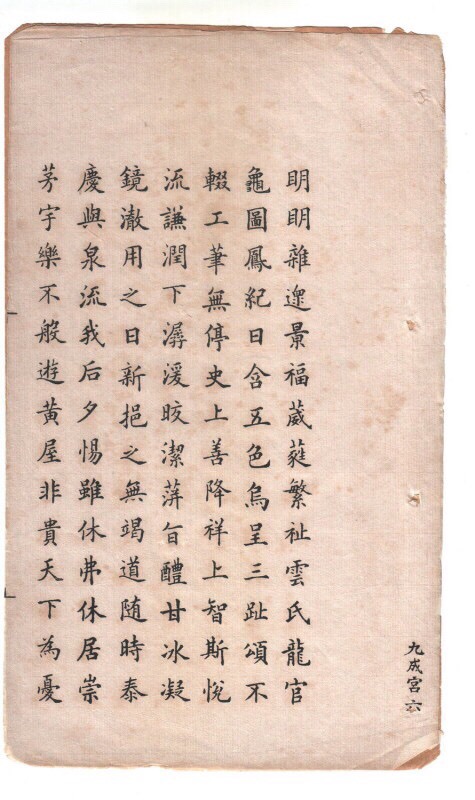 九成宮 六
明明雜遝景福葳蕤繁祉雲氏龍官
龜圖鳳紀日含五色烏呈三趾頌不
輟工筆無停史上善降祥上智斯悅
流謙潤下潺湲晈潔蓱旨醴甘冰凝
鏡澈用之日新挹之無竭道随時泰
慶與泉流我后夕惕雖休弗休居崇
茅宇樂不般遊黃屋非貴天下為憂